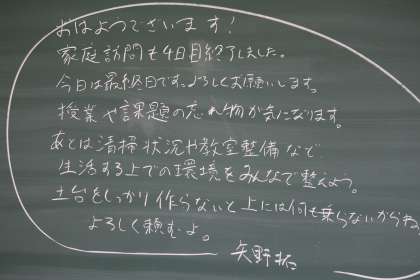 おはようございます!
家庭訪問も4日目終了しました。
今日は最終日です。よろしくお願いします。
授業や課題の忘れ物が気になります。
あとは清掃状況や教室整備など
生活する上での環境をみんなで整えよう。
土台をしっかり作らないと上には何も乗らないからね
よろしく頼むよ。
矢野拓